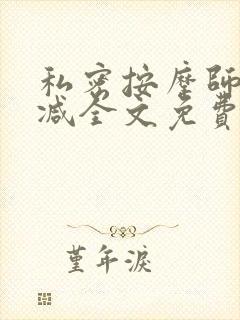 私密按摩師
减全文免費
堇年淚